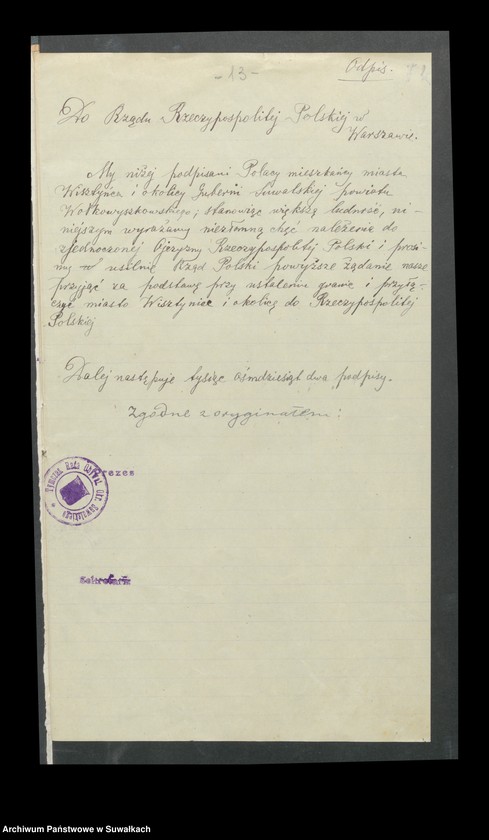 - 13 -
Odpis.
Do Rządu Rzeczypospolitej Polskiej w
Warszawie.
My niżej podpisani Polacy mieszkańcy miasta
Wisztyńca i okolicy Guberni Suwalskiej powiatu
Wołkowyszkowskiego, stanowiąc większą ludność, ni-
niejszym wyrażamy niezłomną chęć należenia do
zjednoczonej Ojczyzny Rzeczypospolitej Polski i prosi-
my usilnie Rząd Polski powyższe żądanie nasze
przyjąć za podstawę przy ustaleniu granic i przyłą-
czyć miasto Wisztyniec i okolicę do Rzeczypospolitej
Polskiej
Dalej następuje tysiąc ośmdziesiąt dwa podpisy.
Zgodne z oryginałem:
Prezes
Tymczas. Rada Obywat. Okr. Suwalskiego
Sekretarz
Archiwum Państwowe w Suwałkach